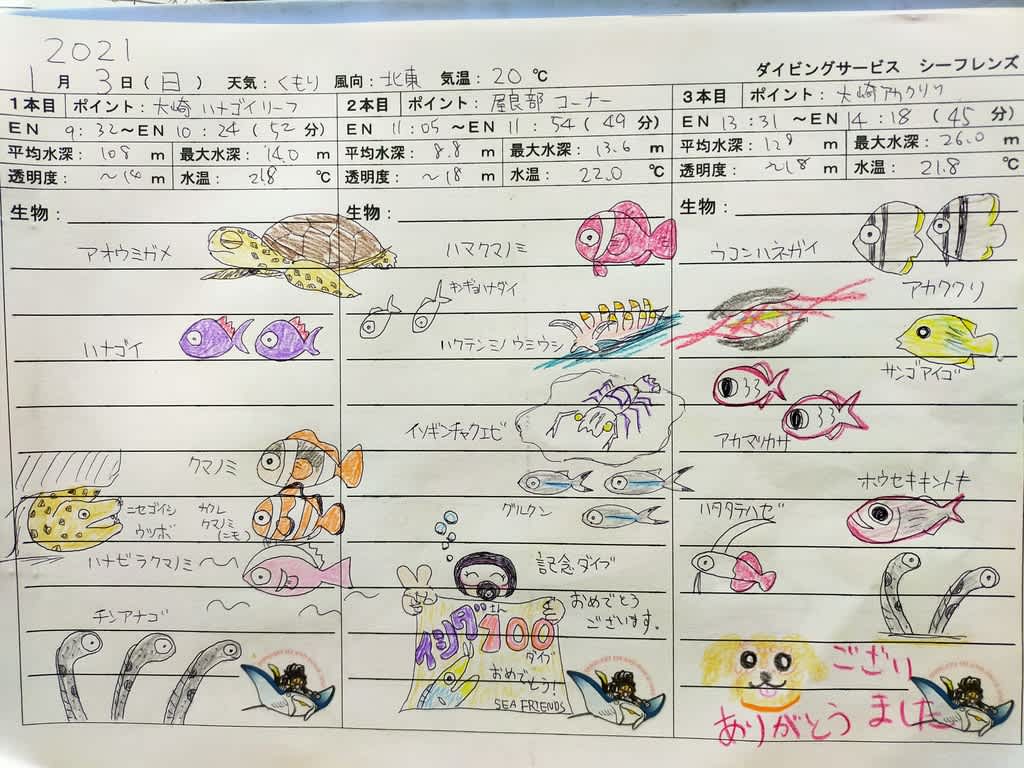 2021
1月 3日(日) 天気:くもり 風向:北東 気温:20℃
ダイビングサービス シーフレンズ
1本目 ポイント:大崎 ハナゴイリーフ
EN 9:32〜EN 10:24(52分)
平均水深:10.8 m 最大水深:14.0 m
透明度: 〜18 m 水温: 21.8 ℃
生物:
アオウミガメ
ハナゴイ
クマノミ
ニセゴイシ
ウツボ
カクレ
クマノミ
(ニモ)
ハナビラクマノミ
チンアナゴ
2本目 ポイント:屋良部 コーナー
EN 11:05 〜EN 11:54(49分)
平均水深: 8.8 m 最大水深: 13.6 m
透明度: 〜18 m 水温: 22.0 ℃
生物:
ハマクマノミ
キンギョハナダイ
ハクテンミノウミウシ
イソギンチャクエビ
グルクン
記念ダイブ
おめでとう
ございます。
イシダさん
100
ダイブ
おめでとう!
SEA FRIENDS
3本目 ポイント:大崎アカククリ
EN 13:31 〜EN 14:18(45分)
平均水深: 12.9 m 最大水深: 26.0 m
透明度: 〜18 m 水温: 21.8 ℃
生物:
ウコンハネガイ
アカククリ
サンゴアイゴ
アカマツカサ
ホウセキキントキ
ハタタテハゼ
ありがとう
ござい
ました